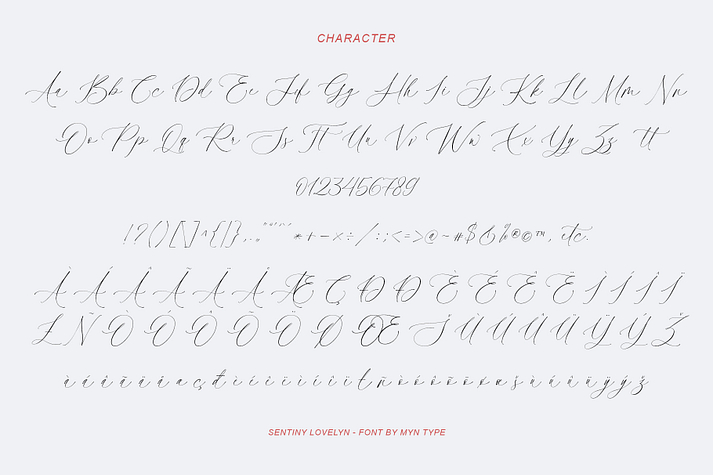 CHARACTER
Aa Bb Cc Dd Ee Ff Gg Hh Ii Jj Kk Ll Mm Nn
Oo Pp Qq Rr Ss Tt Uu Vv Ww Xx Yy Zz tt
0123456789
!?()[\]^{|},.„"''"'*+-×÷/:;<=>@~#$&%®©™, etc.
À Á Â Ã Ä Å Æ Ç Ð Đ È É Ê Ë Ì Í Î Ï
Ł Ñ Ò Ó Ô Õ Ö Ø Œ Š Ù Ú Û Ü Ÿ Ý Ž
à á â ã ä å æ ç đ è é ê ë ì í î ï ł ñ ò ó ô õ ö ø œ š ù ú û ü ÿ ý ž
SENTINY LOVELYN - FONT BY MYN TYPE